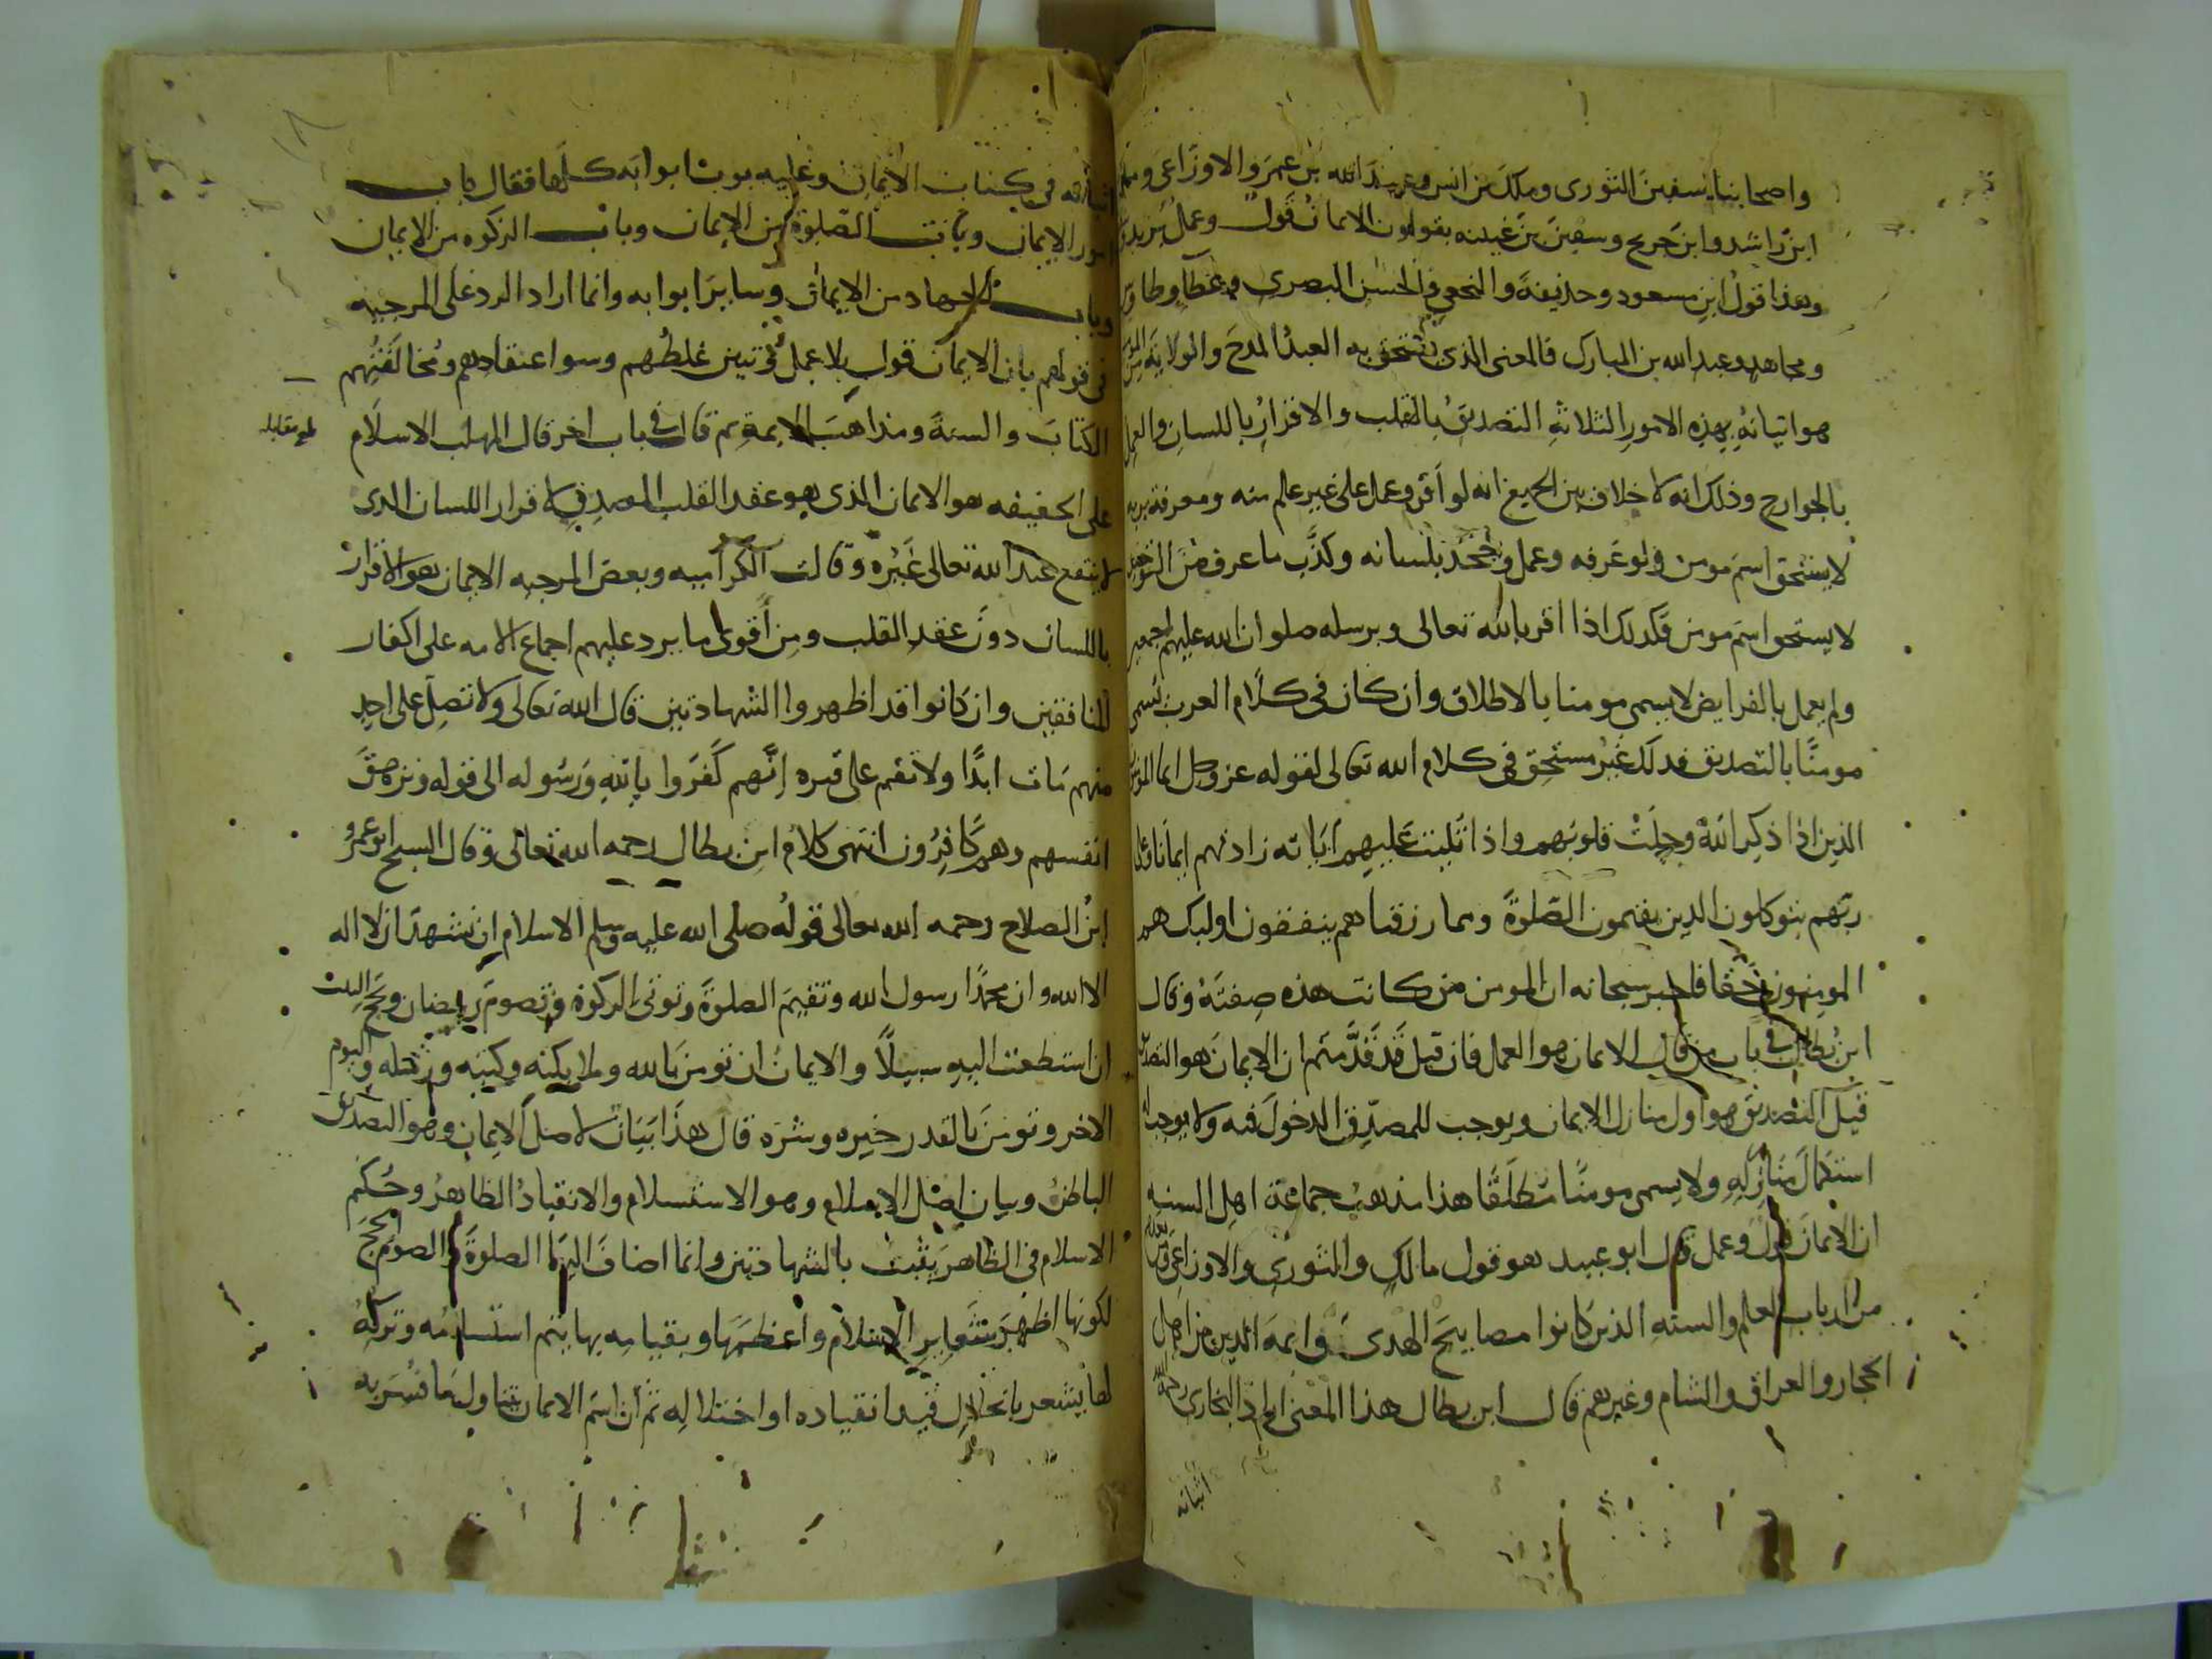 واصحابنا سفين الثورى وملك بن انس وعبيد الله بن عمر والاوزاعى ومعمر
ابن راشد وابن جريج وسفين بن عيينه يقولون الايمان قول وعمل يزيد
وهذا قول ابن مسعود وحذيفة والنخعي والحسن البصرى وعطا وطاوس
ومجاهد وعبد الله بن المبارك فالمعنى الذى يستحق به العبد المدح والولاية من
هو اتيانه بهذه الامور الثلاثة التصديق بالقلب والاقرار باللسان والعمل
بالجوارح وذلك انه لا خلاف بين الجميع انه لو اقر وعمل على غير علم منه ومعرفة بربه
لا يستحق اسم مومن ولو عرفه وعمل وجحد بلسانه وكذب ما عرف من التوحيد
لا يستحق اسم مومن فكذلك اذا اقر بالله تعالى وبرسله صلوات الله عليهم اجمعين
ولم يعمل بالفرايض لا يسمى مومنا بالاطلاق وان كان فى كلام العرب تسمى
مومنًا بالتصديق فذلك غير مستحق فى كلام الله تعالى لقوله عز وجل انما المومنون
الذين اذا ذكر الله وجلت قلوبهم واذا تليت عليهم آياته زادتهم ايمانا وعلى
ربهم يتوكلون الذين يقيمون الصلوة ومما رزقناهم ينفقون اوليك هم
المومنون حقا فاخبر سبحانه ان المومن من كانت هذه صفته وقال
ابن بطال فى باب من قال الايمان هو العمل فان قيل قد قدمتم ان الايمان هو التصديق
قيل التصديق هو اول منازل الايمان ويوجب للمصدق الدخول فيه ولا يوجب له
استكمال منازله ولا يسمى مومنًا مطلقًا هذا مذهب جماعة اهل السنه
ان الايمان قول وعمل قال ابو عبيد هو قول مالك والثورى والاوزاعى ومن بعدهم
من ارباب العلم والسنه الذين كانوا مصابيح الهدى وايمة الدين من اهل
الحجاز والعراق والشام وغيرهم قال ابن بطال هذا المعنى اراد البخارى رحمه الله
اثباته
اثباته فى كتاب الايمان وعليه بوب ابوابه كلها فقال باب
امور الايمان وباب الصلوة من الايمان وباب الزكوه من الايمان
وباب الجهاد من الايمان وساير ابوابه وانما اراد الرد على المرجيه
فى قولهم بان الايمان قول بلا عمل وتبين غلطهم وسوا عتقادهم ومخالفتهم
الكتاب والسنة ومذاهب الايمة ثم قال فى باب اخر قال المهلب الاسلام
بلغ مقابله
على الحقيقه هو الايمان الذى هو عقد القلب المصدق لاقرار اللسان الذى
لا ينفع عند الله تعالى غيره وقالت الكراميه وبعض المرجيه الايمان هو الاقرار
باللسان دون عقد القلب ومن أقوى ما يرد عليهم اجماع الامه على اكفار
المنافقين وان كانوا قد اظهروا الشهادتين قال الله تعالى ولا تصل على احد
منهم مات ابدًا ولا تقم على قبره إنهم كفروا بالله ورسوله الى قوله وتزهق
انفسهم وهم كافرون انتهى كلام ابن بطال رحمه الله تعالى وقال الشيخ ابو عمرو
ابن الصلاح رحمه الله تعالى قوله صلى الله عليه وسلم الاسلام ان تشهد ان لا اله
الا الله وان محمدًا رسول الله وتقيم الصلوة وتوتى الزكوة وتصوم رمضان وتحج البيت
ان استطعت اليه سبيلًا والايمان ان تومن بالله وملايكته وكتبه ورسله واليوم
الاخر وتومن بالقدر خيره وشره قال هذا بيان لاصل الايمان وهو التصديق
الباطن وبيان اصل الاسلام وهو الاستسلام والانقياد الظاهر وحكم
الاسلام فى الظاهر يثبت بالشهادتين وانما اضاف اليهما الصلوة والصوم والحج
لكونها اظهر شعاير الاسلام واعظمها وبقيامه بها يتم استسلامه وتركه
لها يشعر بانحلال قيد انقياده او اختلاله ثم ان اسم الايمان يتناول ما فسر به